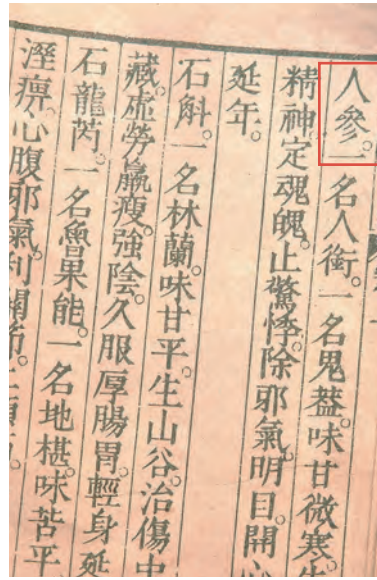 人參。一名人銜。一名鬼葢。味甘微寒。生
精神。定魂魄。止驚悸。除邪氣。明目。開心
延年。
石斛。一名林蘭。味甘平。生山谷。治傷中
藏。虛勞羸瘦。強陰。久服厚腸胃。輕身延
石龍芮。一名魯果能。一名地椹。味苦平
溼痹。心腹邪氣。利關節。